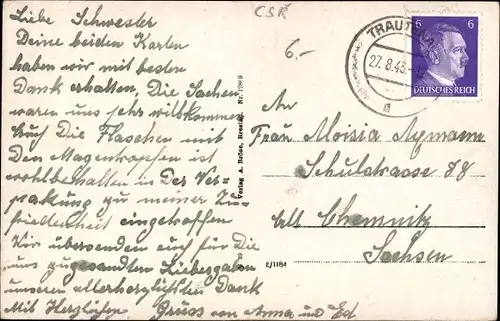 Liebe Schwester
Deine beiden Karten
haben wir mit besten
Dank erhalten, Die Sachen
waren uns sehr willkommen
Auch Die Flaschen mit
Den Magentropfen ist
wohlbehalten in Der Ver-
pakung zu meiner Zu-
friedenheit eingetroffen
Wir übersenden euch für Die
uns zugesandten Liebesgaben
unseren allerherzlichsten Dank
Mit Herzlichen Gruss von Anna und Ed
CSR
6,-
TRAUT
27.8.43
a
6 6
DEUTSCHES REICH
Verlag A. Bröse, Breslau Nr. 17869
E/1184
An
Frau Aloisia Aymann
Schulstrasse 78
Alt Chemnitz
Sachsen